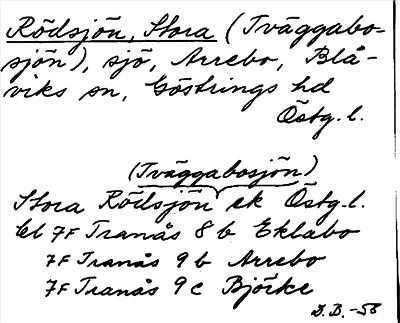 Rödsjön, Stora (Tväggabo-
sjön), sjö, Arrebo, Blå-
viks sn, Göstrings hd
Östg. l.
(Tväggabosjön)
Stora Rödsjön ek Östg. l.
Bl 7F Tranås 8 b Eklabo
7F Tranås 9 b Arrebo
7F Tranås 9 c Björke
D. B. -58